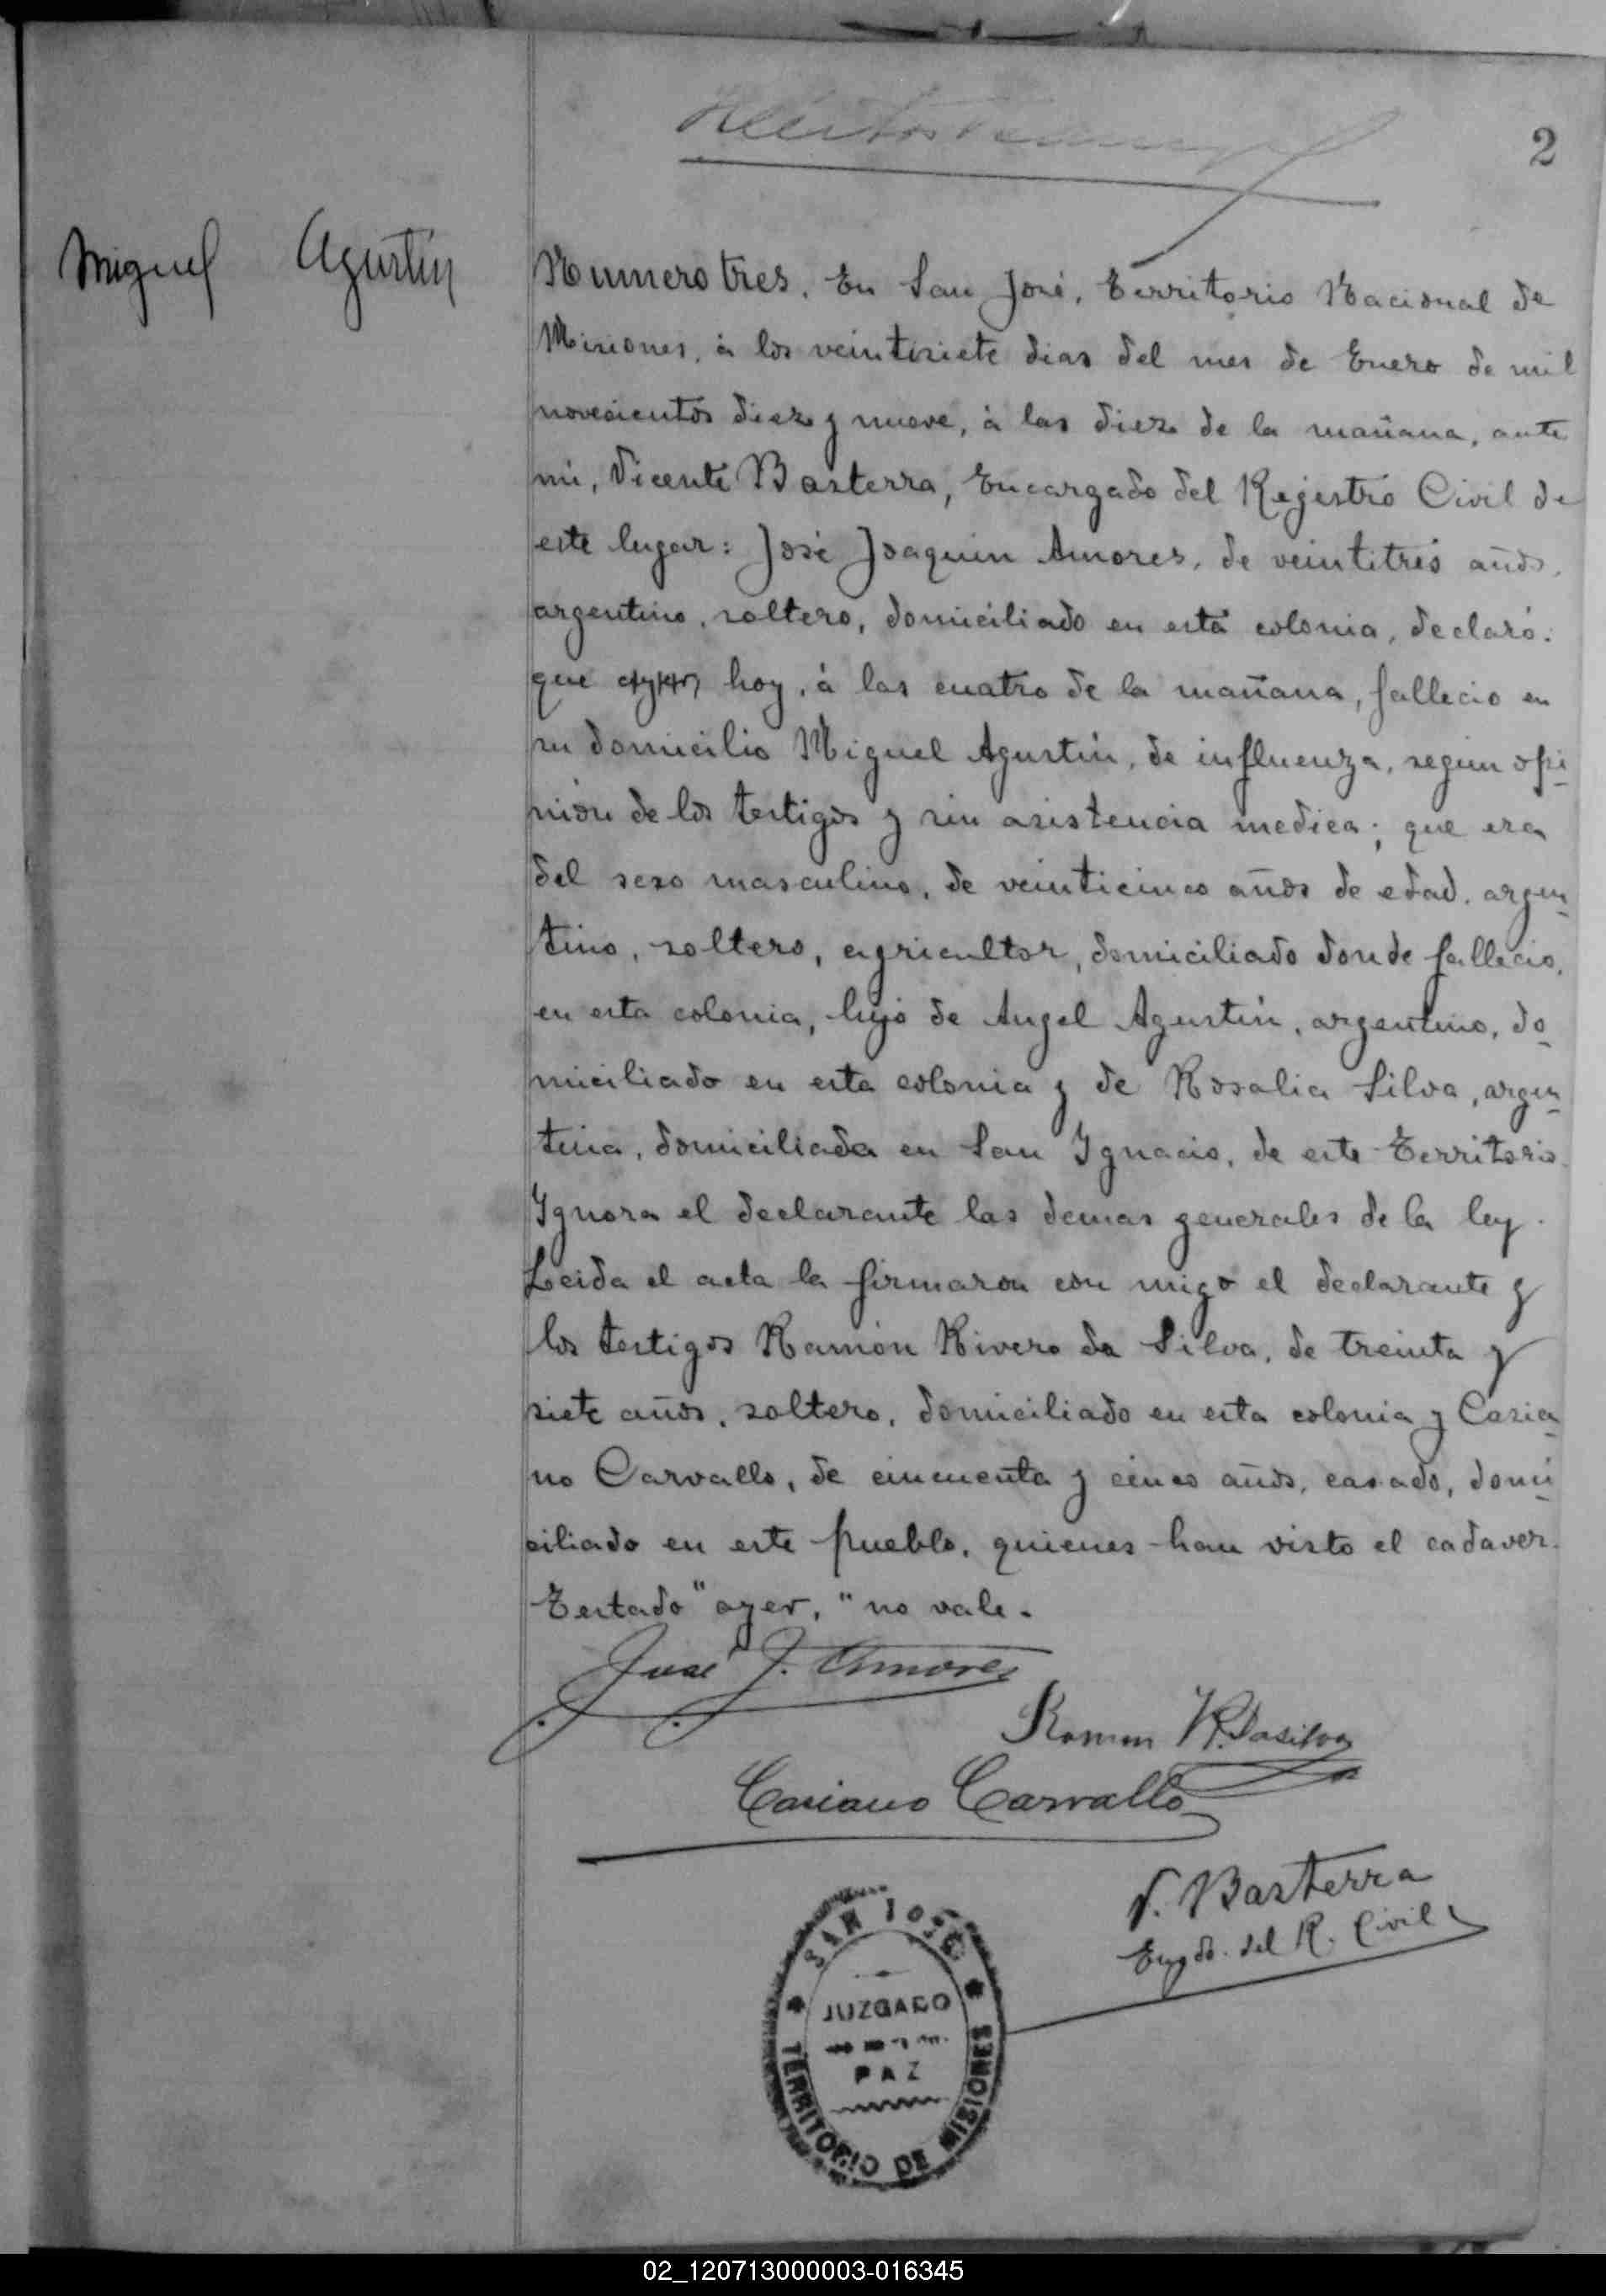 2
Miguel Agustin
Numero tres. En San José, Territorio Nacional de
Misiones, à los veintisiete dias del mes de Enero de mil
novecientos diez y nueve, à las diez de la mañana, ante
mi, Vicente Basterra, Encargado del Rejistro Civil de
este lugar: José Joaquin Amores, de veintitrés años,
argentino, soltero, domiciliado en esta colonia, declaró:
que ayer hoy, à las cuatro de la mañana, fallecio en
su domicilio Miguel Agustin, de influenza, segun opi-
nión de los testigos y sin asistencia medica; que era
del sexo masculino, de veinticinco años de edad, argen-
tino, soltero, agricultor, domiciliado donde fallecio,
en esta colonia, hijo de Angel Agustin, argentino, do-
miciliado en esta colonia y de Rosalia Silva, argen-
tina, domiciliada en San Ignacio, de este Territorio.
Ignora el declarante las demas generales de la ley.
Leida el acta la firmaron con migo el declarante y
los testigos Ramón Rivero da Silva, de treinta y
siete años, soltero, domiciliado en esta colonia y Casia-
no Carvallo, de cincuenta y cinco años, casado, domi-
ciliado en este pueblo, quienes han visto el cadaver.
Testado "ayer," no vale.
José J. Amores
Ramon R. Dasilva
Casiano Carvallo
V. Basterra
Engdo. del R. Civil
SAN JOSÉ
JUZGADO
PAZ
TERRITORIO DE MISIONES
02_120713000003-016345